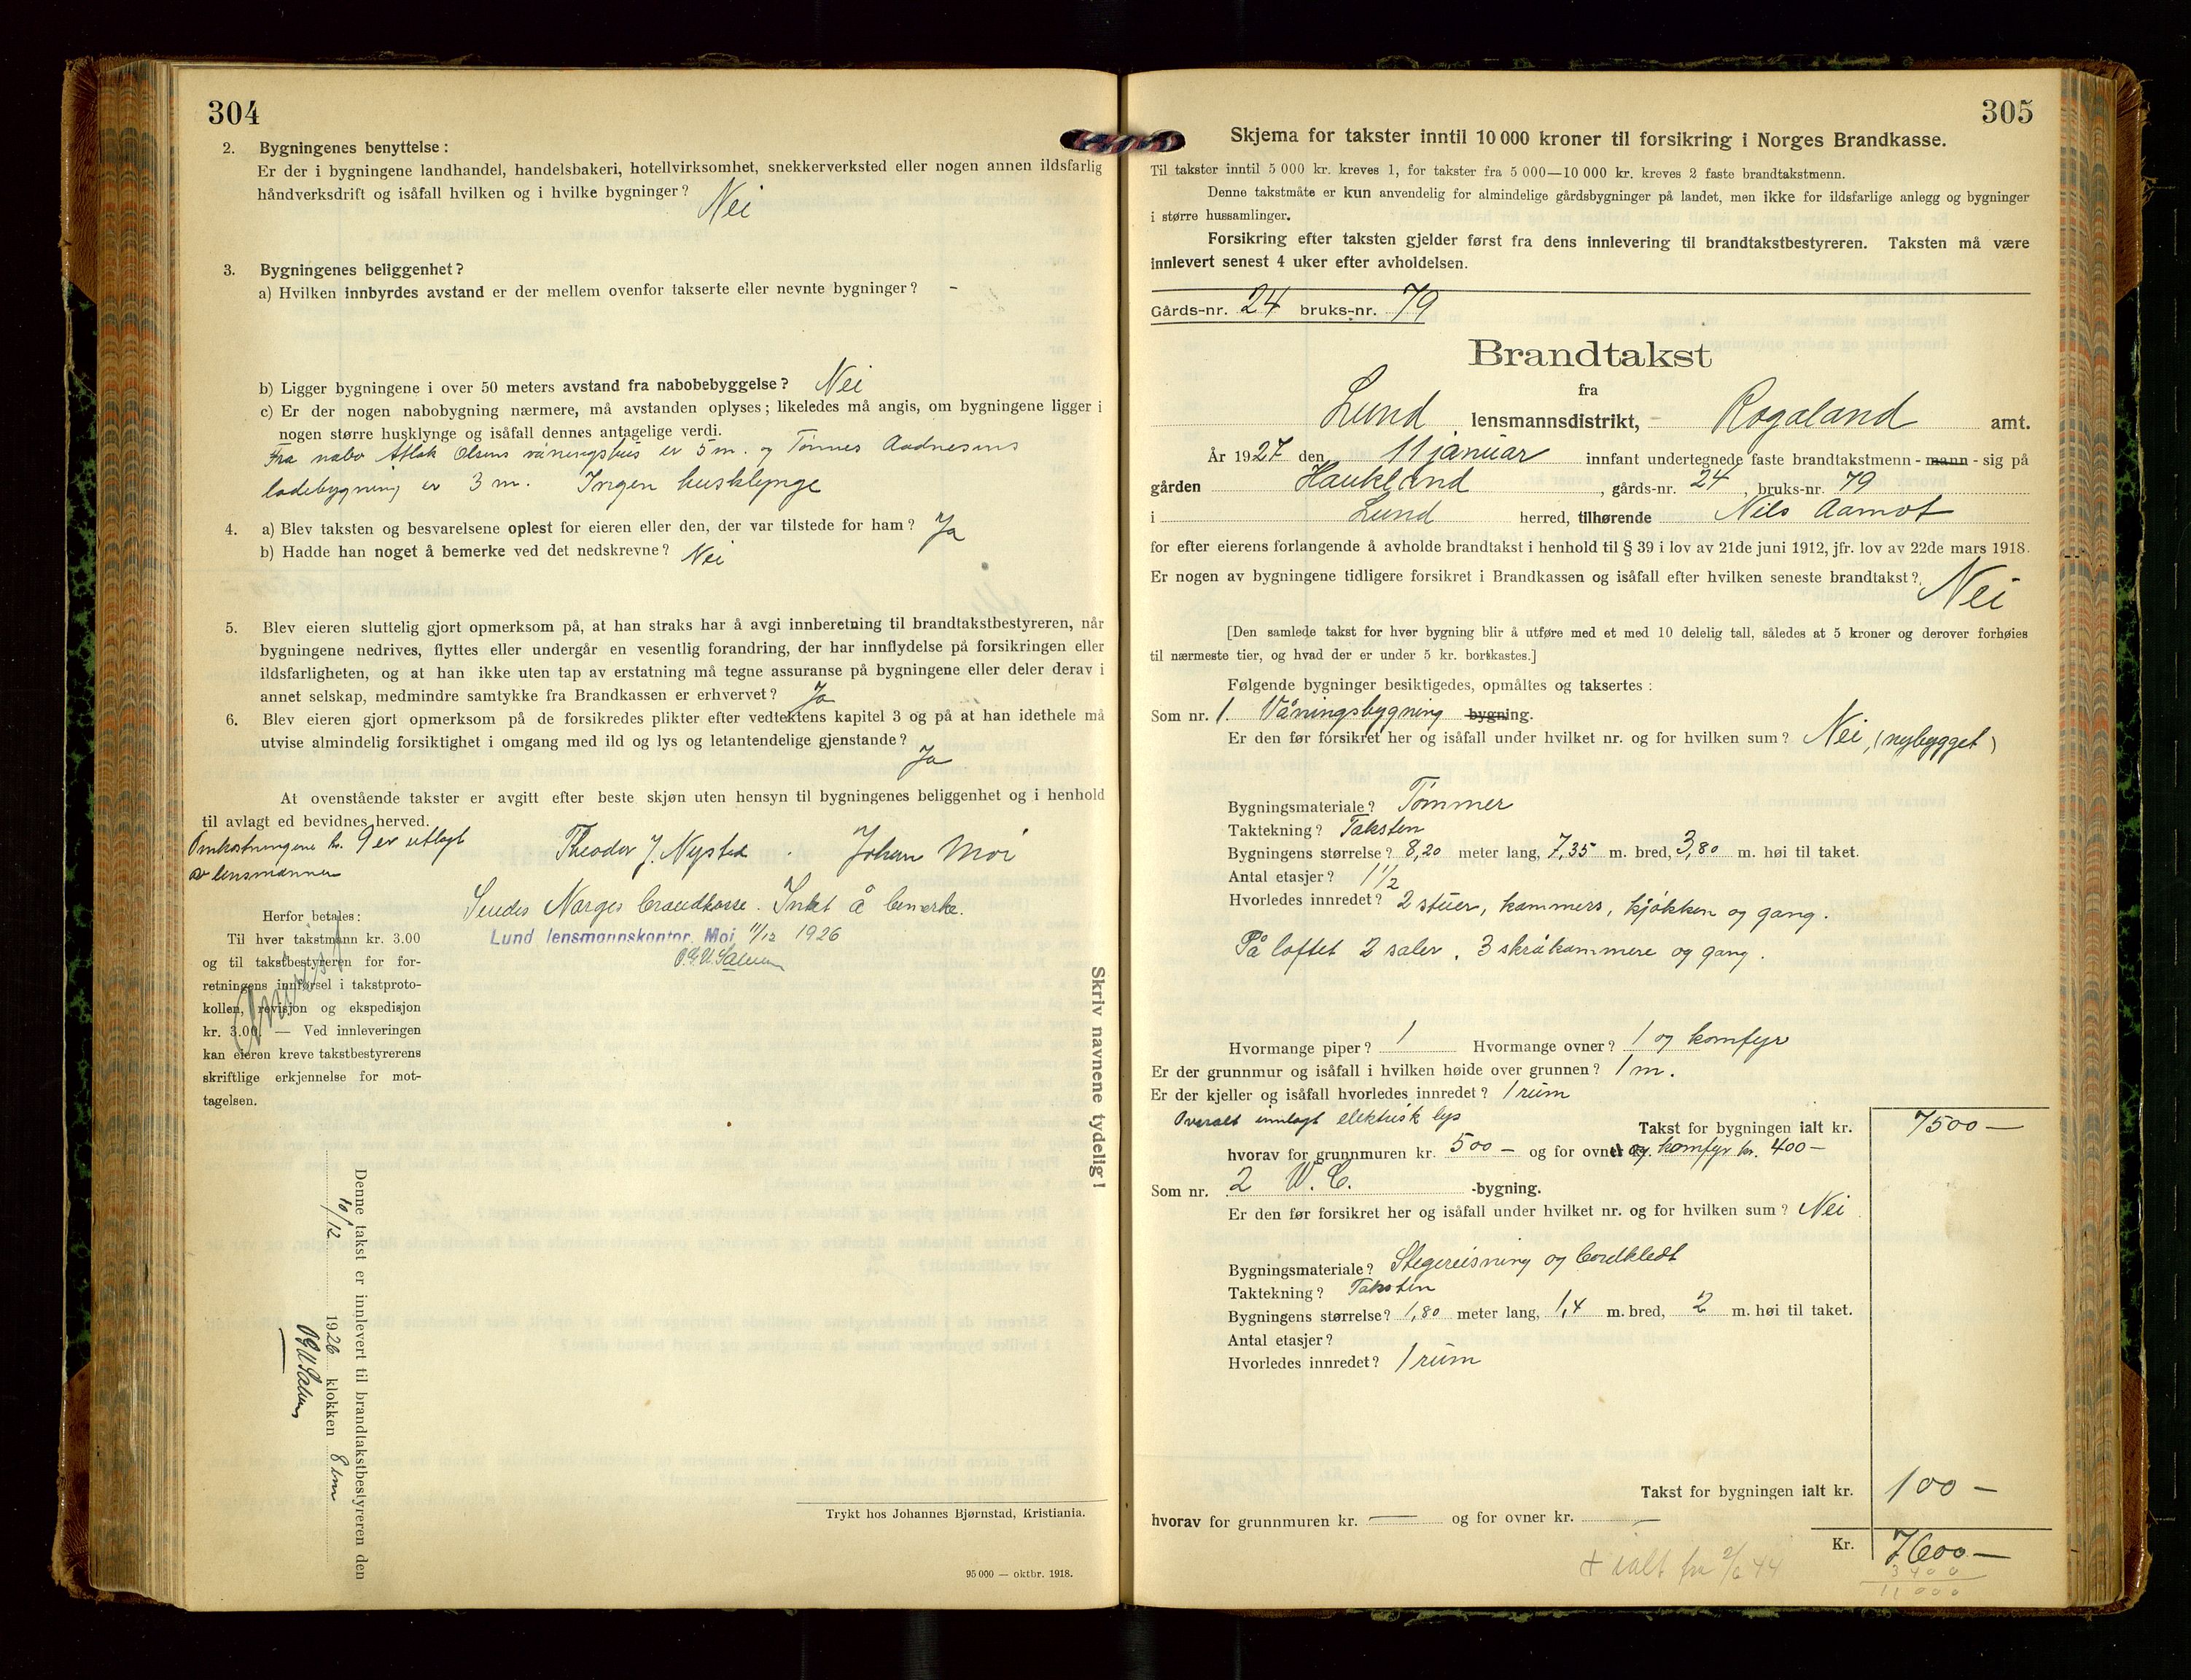 304
2. Bygningenes benyttelse :
Er der i bygningene landhandel, handelsbakeri, hotellvirksomhet, snekkerverksted eller nogen annen ildsfarlig
håndverksdrift og isåfall hvilken og i hvilke bygninger? Nei
3. Bygningenes beliggenhet?
a) Hvilken innbyrdes avstand er der mellem ovenfor takserte eller nevnte bygninger? -
b) Ligger bygningene i over 50 meters avstand fra nabobebyggelse? Nei
c) Er der nogen nabobygning nærmere, må avstanden oplyses; likeledes må angis, om bygningene ligger i
nogen større husklynge og isåfall dennes antagelige verdi.
Fra nabo Atlak Olsens våningshus er 5 m. og Tønnes Aadnesens
ladebygning er 3 m. Ingen husklynge
4. a) Blev taksten og besvarelsene oplest for eieren eller den, der var tilstede for ham? Ja
b) Hadde han noget å bemerke ved det nedskrevne? Nei
5. Blev eieren sluttelig gjort opmerksom på, at han straks har å avgi innberetning til brandtakstbestyreren, når
bygningene nedrives, flyttes eller undergår en vesentlig forandring, der har innflydelse på forsikringen eller
ildsfarligheten, og at han ikke uten tap av erstatning må tegne assuranse på bygningene eller deler derav i
annet selskap, medmindre samtykke fra Brandkassen er erhvervet? Ja
6. Blev eieren gjort opmerksom på de forsikredes plikter efter vedtektens kapitel 3 og på at han idethele må
utvise almindelig forsiktighet i omgang med ild og lys og letantendelige gjenstande?
Ja
At ovenstående takster er avgitt efter beste skjøn uten hensyn til bygningenes beliggenhet og i henhold
til avlagt ed bevidnes herved.
Omkostningene kr. 9 er utlagt
av lensmannen
Theodor J. Nysted . Johan Moi
Sendes Norges brandkasse. Intet å bemerke.
Lund lensmannskontor, Moi 11/12 1926
Herfor betales:
Til hver takstmann kr. 3.00
og til takstbestyreren for for-
retningens innførsel i takstproto-
kollen, revisjon og ekspedisjon
kr. 3.00. — Ved innleveringen
kan eieren kreve takstbestyrerens
skriftlige erkjennelse for mot-
tagelsen.
Skriv navnene tydelig!
Denne takst er innlevert til brandtakstbestyreren den
10/12 1926 klokken 8 em
Trykt hos Johannes Bjørnstad, Kristiania.
95 000 — oktbr. 1918.
305
Skjema for takster inntil 10 000 kroner til forsikring i Norges Brandkasse.
Til takster inntil 5 000 kr. kreves 1, for takster fra 5 000—10 000 kr. kreves 2 faste brandtakstmenn.
Denne takstmåte er kun anvendelig for almindelige gårdsbygninger på landet, men ikke for ildsfarlige anlegg og bygninger
i større hussamlinger.
Forsikring efter taksten gjelder først fra dens innlevering til brandtakstbestyreren. Taksten må være
innlevert senest 4 uker efter avholdelsen.
Gårds-nr. 24 bruks-nr. 79
Brandtakst
fra
Lund lensmannsdistrikt, - Rogaland amt.
År 1927 den 11 januar innfant undertegnede faste brandtakstmenn - mann - sig på
gården Haukland, gårds-nr. 24, bruks-nr. 79
i Lund herred, tilhørende Nils Aamot
for efter eierens forlangende å avholde brandtakst i henhold til § 39 i lov av 21de juni 1912, jfr. lov av 22de mars 1918.
Er nogen av bygningene tidligere forsikret i Brandkassen og isåfall efter hvilken seneste brandtakst? Nei
[Den samlede takst for hver bygning blir å utføre med et med 10 delelig tall, således at 5 kroner og derover forhøies
til nærmeste tier, og hvad der er under 5 kr. bortkastes.]
Følgende bygninger besiktigedes, opmåltes og taksertes :
Som nr. 1. Våningsbygning bygning.
Er den før forsikret her og isåfall under hvilket nr. og for hvilken sum? Nei (nybygget)
Bygningsmateriale? Tømmer
Taktekning? Taksten
Bygningens størrelse? 8,20 meter lang, 7,35 m. bred, 3,80 m. høi til taket.
Antal etasjer? 1 1/2
Hvorledes innredet? 2 stuer, kammers, kjøkken og gang.
På loftet 2 saler, 3 skråkammere og gang.
Hvormange piper? 1 Hvormange ovner? 1 og komfyr
Er der grunnmur og isåfall i hvilken høide over grunnen? 1 m.
Er der kjeller og isåfall hvorledes innredet? 1 rum
Overalt innlagt elektrisk lys
Takst for bygningen ialt kr. 7500 —
hvorav for grunnmuren kr. 500 — og for ovner og komfyr kr. 400 —
Som nr. 2 W. C. -bygning.
Er den før forsikret her og isåfall under hvilket nr. og for hvilken sum? Nei
Bygningsmateriale? Stegereisning og bordkledt
Taktekning? Taksten
Bygningens størrelse? 1,80 meter lang, 1,4 m. bred, 2 m. høi til taket.
Antal etasjer?
Hvorledes innredet? 1 rum
Takst for bygningen ialt kr. 100 —
hvorav for grunnmuren kr. — og for ovner kr. —
Kr. 7600 —
3400
+ ialt fra 2/6 44 11000